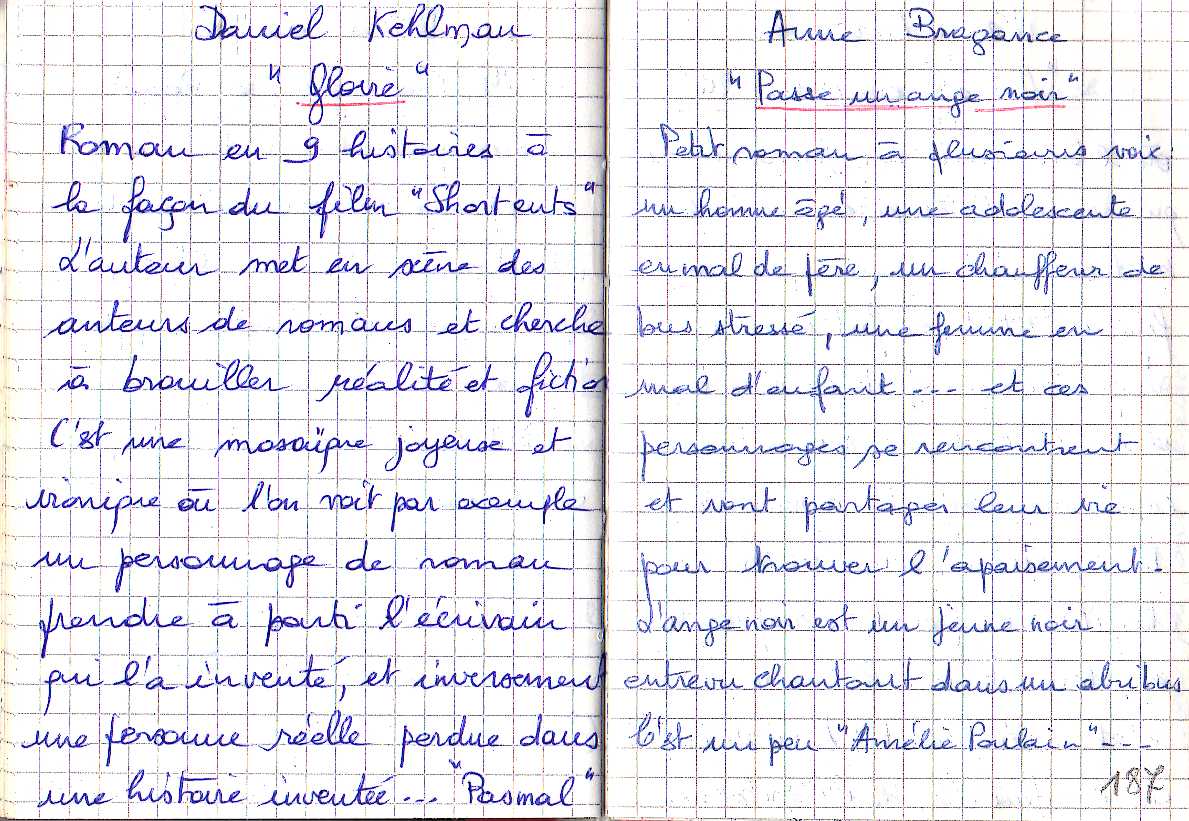 Daniel Kehlman
"Gloire"
Roman en 9 histoires à
la façon du film "Short cuts"
L'auteur met en scène des
auteurs de romans et cherche
à brouiller réalité et fiction
C'est une mosaïque joyeuse et
ironique où l'on voit par exemple
un personnage de roman
prendre à parti l'écrivain
qui l'a inventé, et inversement
une personne réelle perdue dans
une histoire inventée... "Pasmal"
Anne Bragance
"Passe un ange noir"
Petit roman à plusieurs voix:
un homme âgé, une adolescente
en mal de père, un chauffeur de
bus stressé, une femme en
mal d'enfant --- et ces
personnages se rencontrent
et vont partager leur vie
pour trouver l'apaisement.
L'ange noir est un jeune noir
entrevu chantant dans un abribus
C'est un peu "Amélie Poulain"---
187